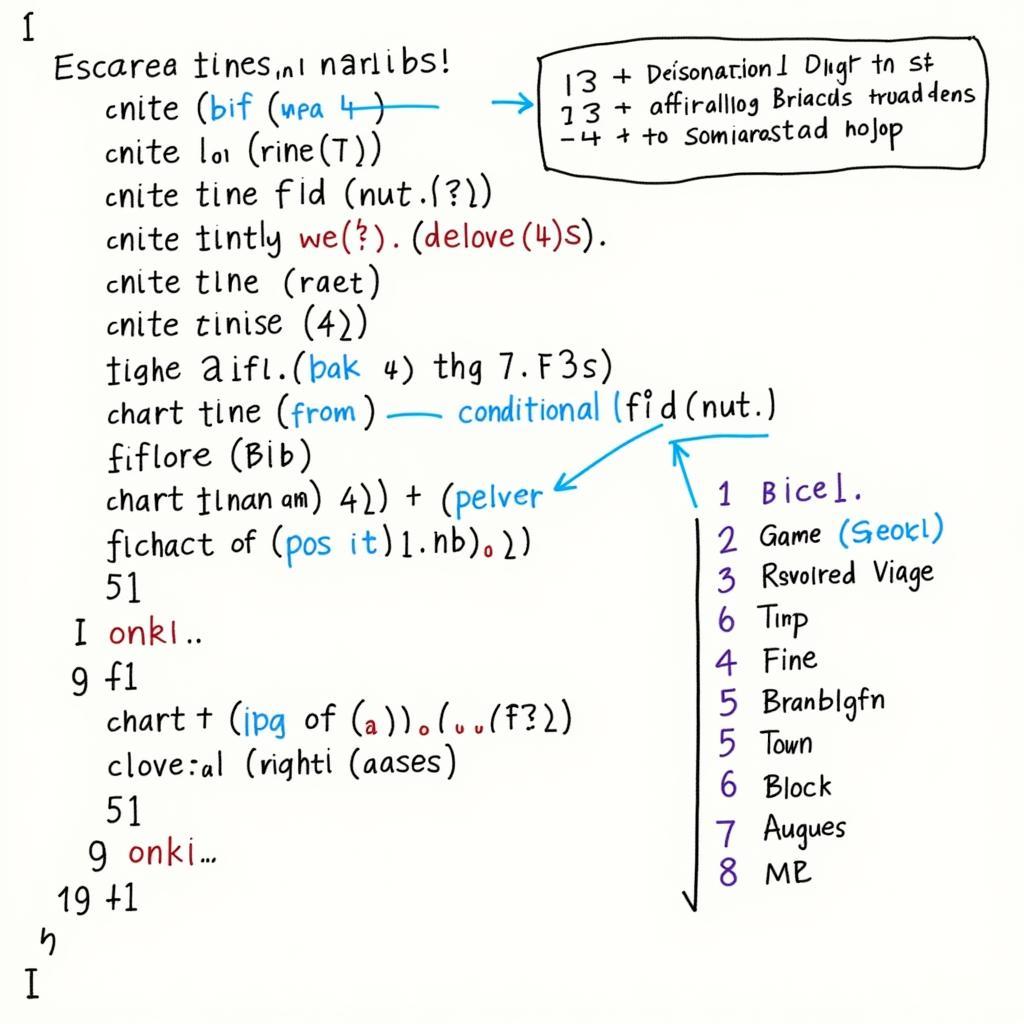 I
Escarea tines,n1 narlibs!
cnite (bif (upa 4)
cnite loı (rine(T))
cnite tine fid (nut.(?2)
cnite tintly we(?). (delove(4)s).
cnite tine (raet)
cnite tinise (42)
tighe aifl.(bak 4) thg 7.F3s)
chart tine (from) — conditional (fid(nut.)
fiflore (Bib)
chart tlnan am) 42) + (pelver
flchact of (pos it)1.nb).2)
51
I onkl..
9 f1
chart + (ipg of (a)).(..(f?2)
clove:al (righti (aases)
51
9 onki...
19 +1
I
13 + Deisonation1 Dlgr tn st
13 + affirallog Briacds truaddens
-4 + to somiarastad hojop
1 Bicel.
2 Game (Seokl)
3 Rsvolred Viage
6 Tinp
4 Fine
5 Branblgfn
5 Town
6 Block
7 Augues
8 ME